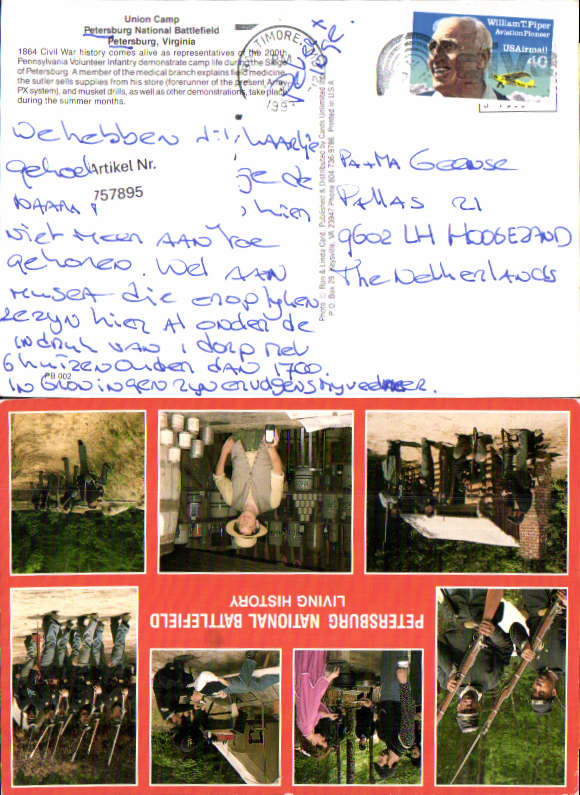 Union Camp
Petersburg National Battlefield
Petersburg, Virginia
1864 Civil War history comes alive as representatives of the 200th
Pennsylvania Volunteer Infantry demonstrate camp life during the Siege
of Petersburg. A member of the medical branch explains field medicine,
the sutler sells supplies from his store (forerunner of the present Army
PX system), and musket drills, as well as other demonstrations, take place
during the summer months.
William T. Piper
Aviation Pioneer
USAirmail
40
We hebben dit kaartje
Artikel Nr.
757895
je de
hier
niet meer aan toe
gekomen. Wel aan
musea die erop lyken
ze zyn hier al onder de
indruk van 1 dorp met
6 huizen ouder dan 1700.
in Groningen zyn er volgens my veel meer.
PB 002
Pa + Ma Geense
Pallas 21
9602 LH Hoogezand
The Netherlands
P.O. Box 29, Keysville, VA 23947 Phone 804 736-9786 Printed in U.S.A.
PETERSBURG NATIONAL BATTLEFIELD
LIVING HISTORY